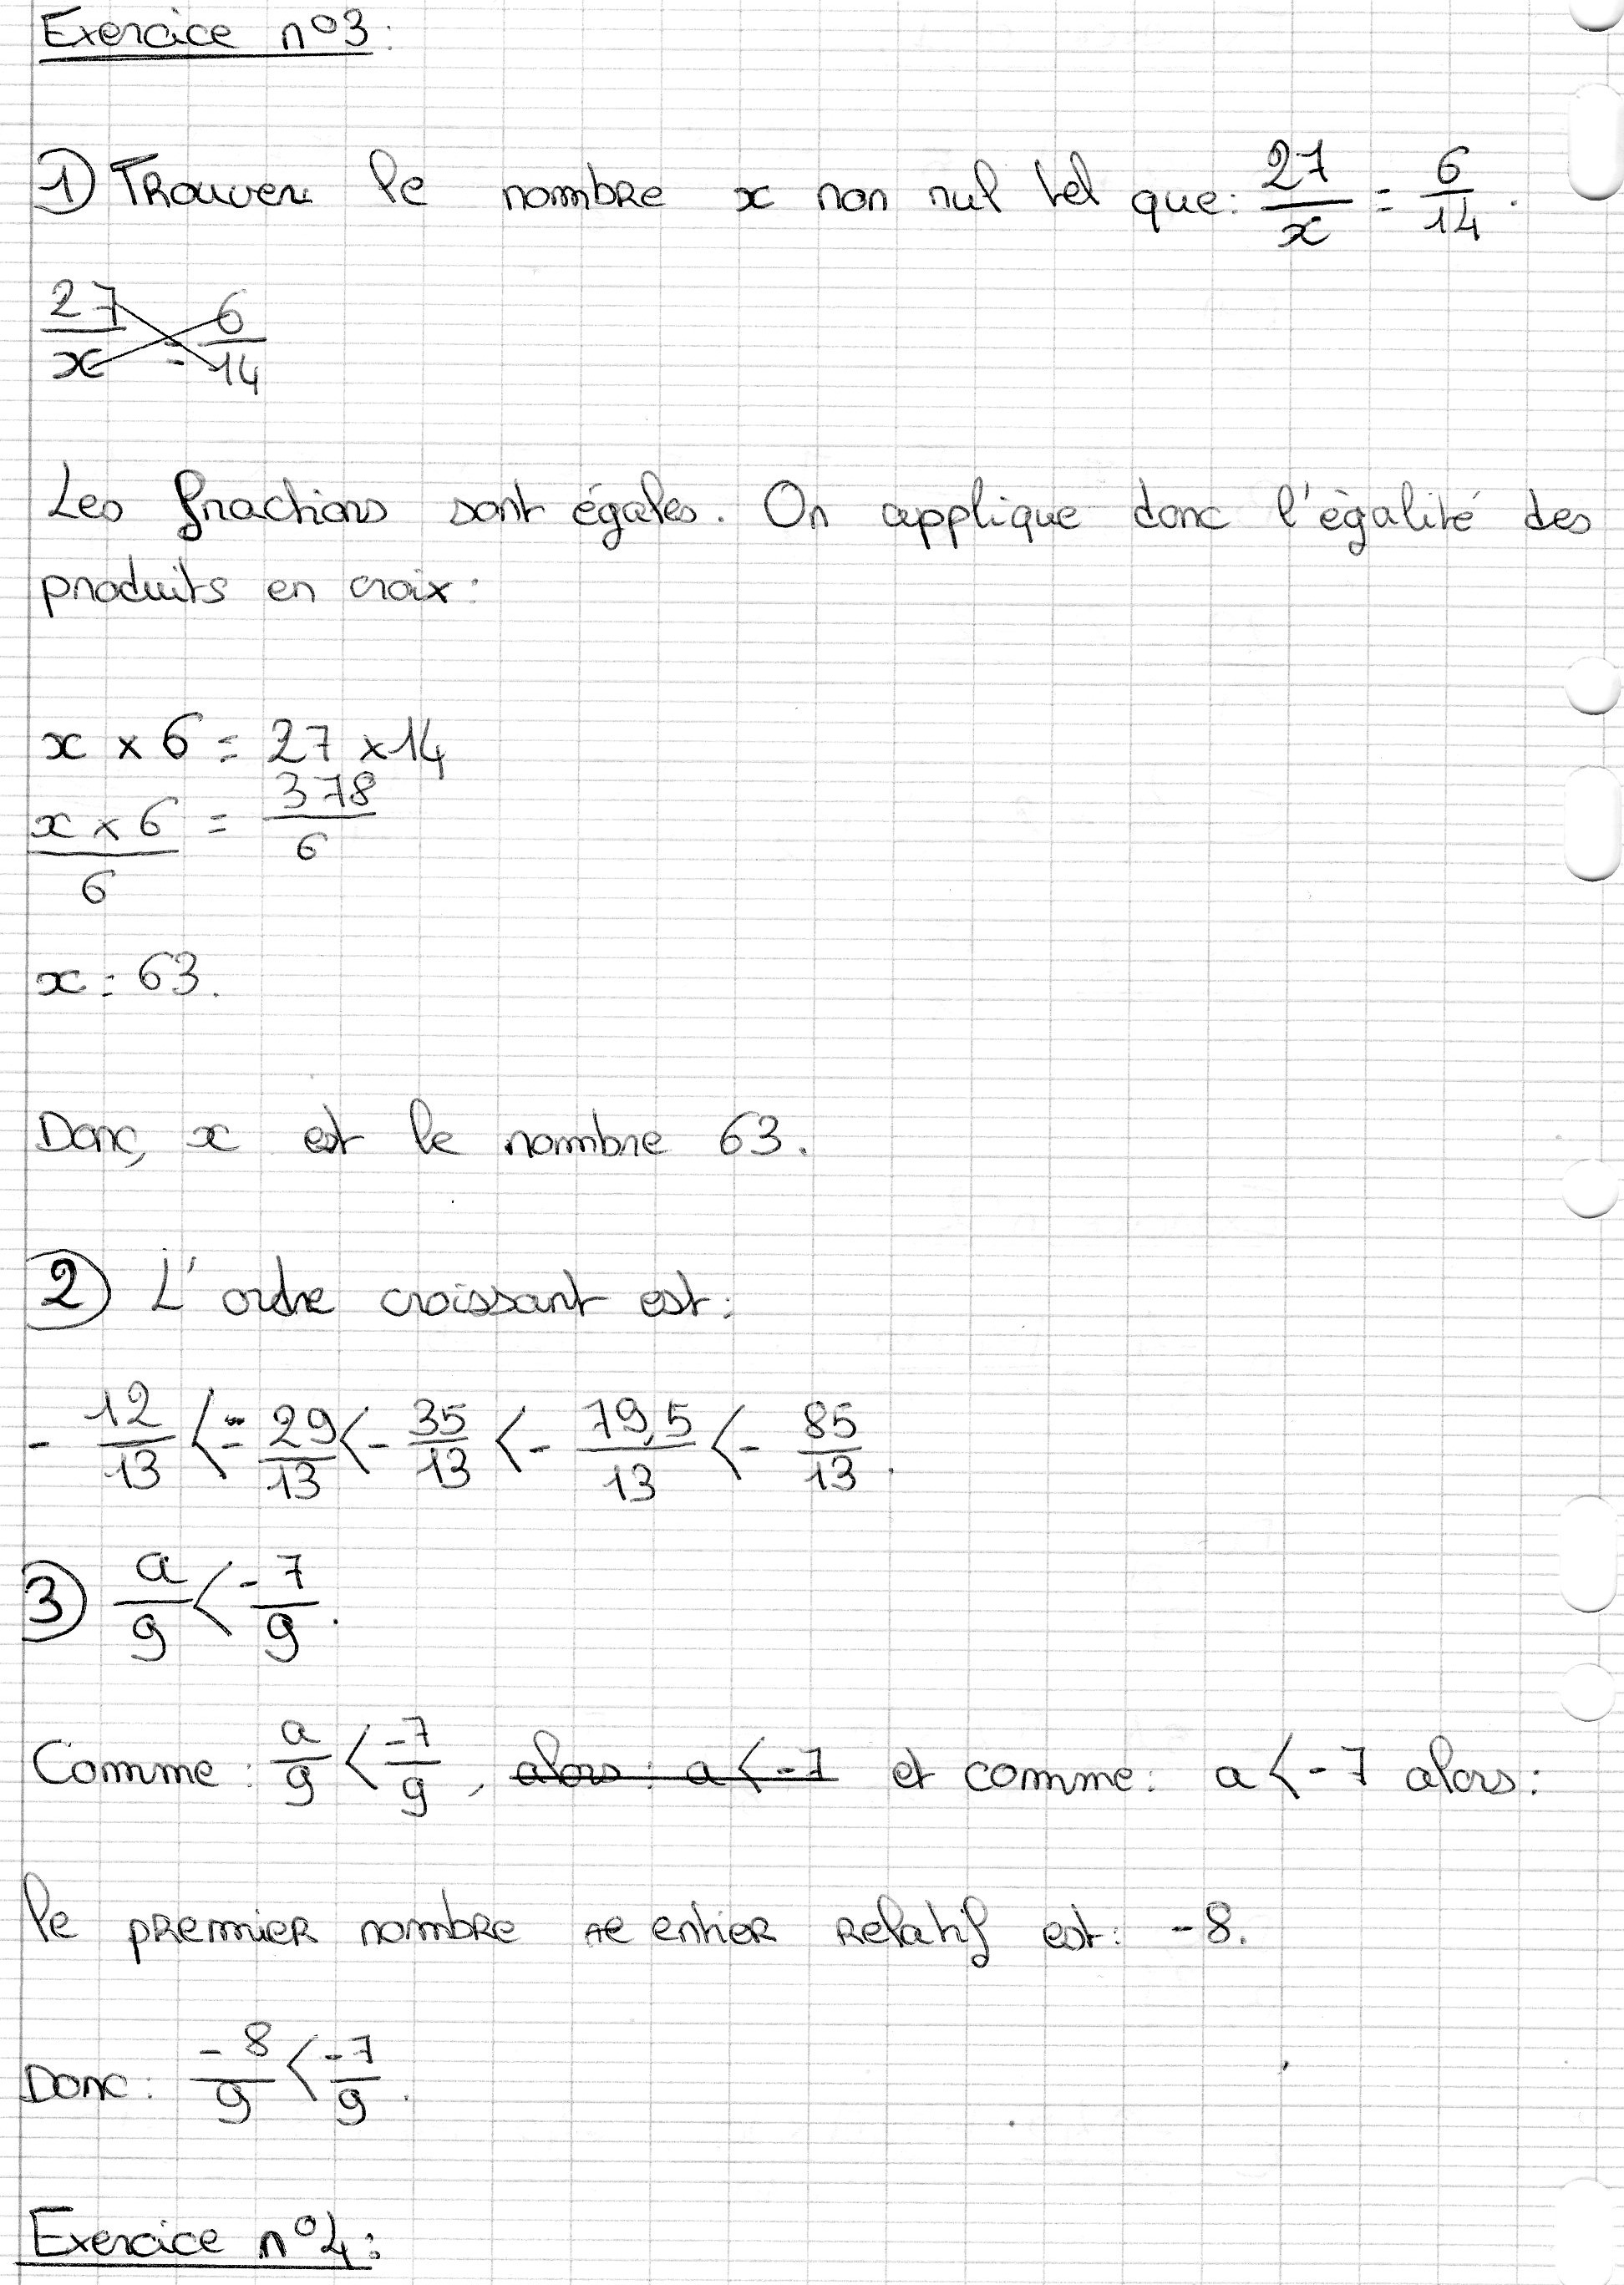 Exercice n°3:
1) Trouver le nombre x non nul tel que: 27/x = 6/14.
27/x = 6/14
Les fractions sont égales. On applique donc l'égalité des
produits en croix:
x × 6 = 27 × 14
x × 6 / 6 = 378 / 6
x = 63.
Donc, x est le nombre 63.
2) L'ordre croissant est:
- 12/13 < - 29/13 < - 35/13 < - 79,5/13 < - 85/13.
3) a/9 < -7/9.
Comme: a/9 < -7/9, alors: a < -7 et comme: a < -7 alors:
le premier nombre re entier relatif est: -8.
Donc: -8/9 < -7/9.
Exercice n°4: